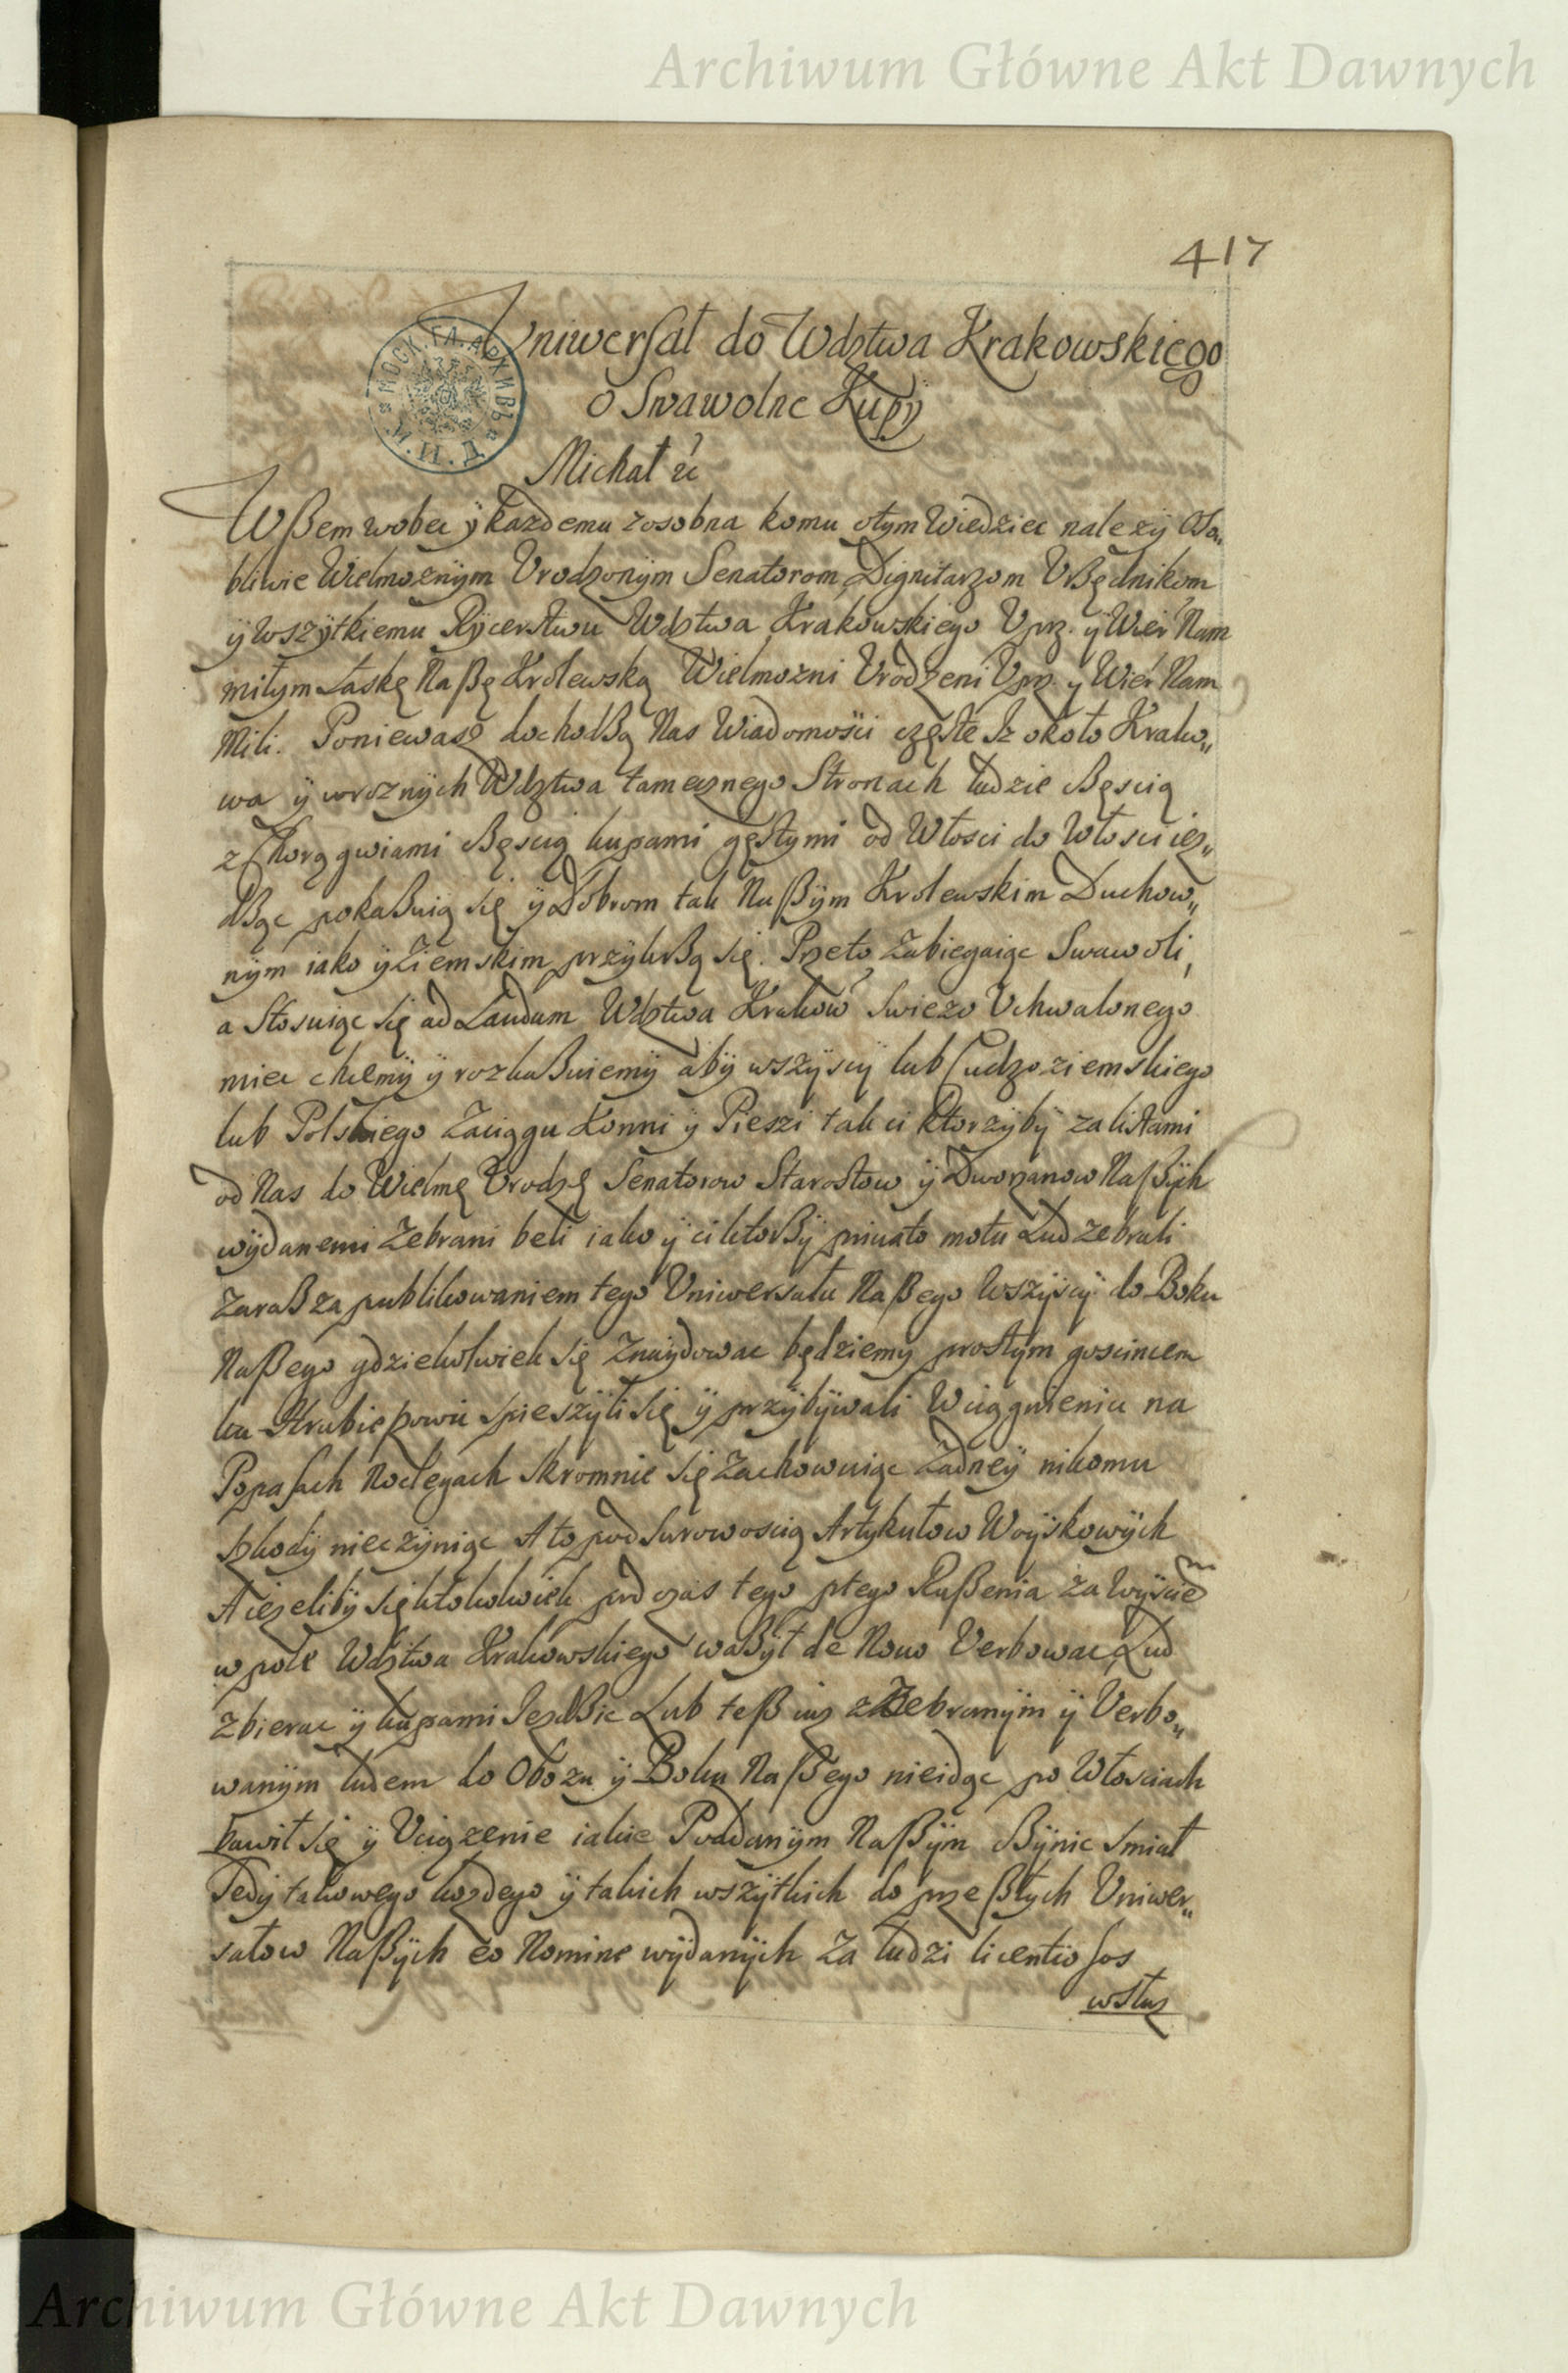 Archiwum Główne Akt Dawnych
417
Uniwersał do Wdztwa Krakowskiego
o Swawolne Kupÿ
МОСК. ГЛ. АРХИВЪ М.И.Д.
Michał &c
Wßem wobec ÿ kazdemu zosobna komu otym Wiedziec nalezÿ Oso„
bliwie Wielmoznÿm Vrodzonÿm Senatorom, Dignitarzom Vßędnikom
ÿ Wszÿtkiemu Rÿcerstwu Wdztwa Krakowskiego Vprz. ÿ Wier Nam
miłym Łaskę Naßę Krolewską Wielmozni Vrodzeni Vprz. y Wier Nam
Mili. Poniewasz dochodßą Nas Wiadomości częste Iz około Krako„
wa ÿ wroznÿch Wdztwa tamecznego Stronach ludzie ßęscią
z Chorągwiami ßęscią kupami gęstymi od Włosci do Włosci iez„
dßąc pokaßuią się ÿ Dobrom tak Naßÿm Krolewskim Duchow„
nÿm iako ÿ Ziemskim przÿkrßą się. Przeto Zabiegaiąc Swawoli,
a Stosuiąc się ad Laudum Wdztwa Krakow Swiezo Vchwalonego
miec chcemÿ ÿ rozkaßuiemÿ abÿ wszÿscÿ lub Cudzoziemskiego
lub Polskiego Zaciągu Konni ÿ Pieszi tak ci Ktorzÿbÿ za listami
od Nas do Wielmę Vrodzę Senatorow Starostow ÿ Dworzanow Naßÿch
wÿdanemi Zebrani beli iako ÿ ci ktorßÿ priuato motu Lud zebrali
Zaraß za publikowaniem tego Vniwersału Naßego Wszÿscÿ do Boku
Naßego gdziekolwiek się Znaÿdowac będziemy prostÿm goscincem
ku Hrubieszowu spieszÿli się ÿ przÿbÿwali W ciągnieniu na
Popasach Noclegach skromnie się Zachowuiąc Zadneÿ nikomu
szkodÿ nieczÿniąc A to pod surowoscią Artykułow Woÿskowÿch
A iezelibÿ się ktokolwiek pod czas tego ptego Rußenia za Wÿscie
w pole Wdztwa Krakowskiego waßÿł de Nowo Verbowac Lud
Zbierac ÿ kupami Iezdßic Lub teß iuz z Zebranÿm ÿ Verbo„
wanÿm ludem do Obozu ÿ Boku Naßego nieidąc po Włosciach
bawił się ÿ Vciązenie iakie Poddanÿm Naßÿm ßÿnic smiał
Tedÿ takowego kozdego ÿ takich wszÿtkich do przeßłych Vniwer„
sałow Naßÿch eo Nomine wÿdanÿch Za ludzi licentiosos
wsłuz
Archiwum Główne Akt Dawnych